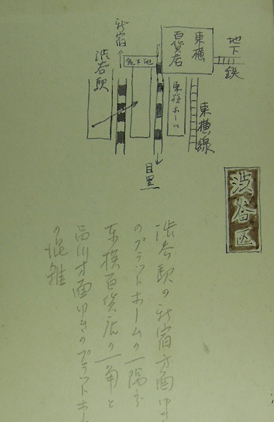 地下鉄
東横百貨店
新宿
渋谷駅
東横ホーム
東横線
目黒
渋谷区
渋谷駅の新宿方面ゆき
のプラットホームの一隅より
東横百貨店の一角と
品川方面ゆきのプラットホーム
の混雑